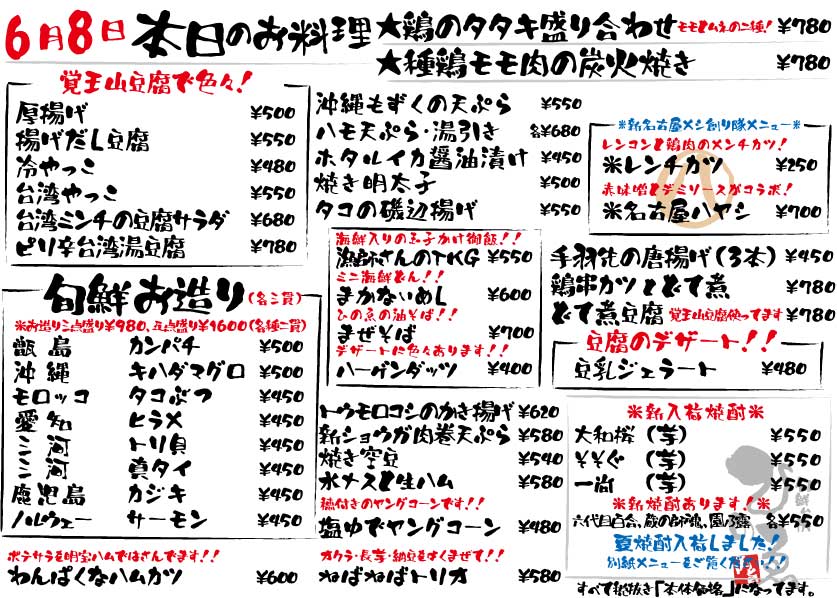 6月8日 本日のお料理
★鶏のタタキ盛り合わせ モモとムネの二種! ¥780
★種鶏モモ肉の炭火焼き ¥780
覚王山豆腐で色々!
厚揚げ ¥500
揚げだし豆腐 ¥550
冷やっこ ¥480
台湾やっこ ¥550
台湾ミンチの豆腐サラダ ¥680
ピリ辛台湾湯豆腐 ¥780
沖縄もずくの天ぷら ¥550
ハモ天ぷら・湯引き 各¥680
ホタルイカ醤油漬け ¥450
焼き明太子 ¥500
タコの磯辺揚げ ¥550
※新名古屋メシ創り隊メニュー※
レンコンと鶏肉のメンチカツ!
※レンチカツ ¥250
赤味噌とデミソースがコラボ!
※名古屋ハヤシ ¥700
旬鮮お造り(各三貫)
※お造り三点盛り¥980、五点盛り¥1600(各種二貫)
甑島 カンパチ ¥500
沖縄 キハダマグロ ¥500
モロッコ タコぶつ ¥450
愛知 ヒラメ ¥450
三河 トリ貝 ¥450
三河 真タイ ¥450
鹿児島 カジキ ¥450
ノルウェー サーモン ¥450
海鮮入りの玉子かけ御飯!!
漁師さんのTKG ¥550
ミニ海鮮どん!!
まかないめし ¥600
ひの魚の油そば!!
まぜそば ¥700
デザートに色々あります!!
ハーゲンダッツ ¥400
手羽先の唐揚げ(3本) ¥450
鶏串カツとどて煮 ¥780
どて煮豆腐 覚王山豆腐使ってます ¥780
豆腐のデザート!!
豆乳ジェラート ¥480
トウモロコシのかき揚げ ¥620
新ショウガ肉巻天ぷら ¥580
焼き空豆 ¥540
水ナスと生ハム ¥580
穂付きのヤングコーンです!!
塩ゆでヤングコーン ¥480
オクラ・長芋・納豆をよくまぜて!!
ねばねばトリオ ¥580
※新入荷焼酎※
大和桜(芋) ¥550
そそぐ(芋) ¥550
一尚(芋) ¥550
※新焼酎あります!※
六代目百合、蔵の師魂、園乃露 各¥550
夏焼酎入荷しました!
別紙メニューをご覧ください!!
ポテサラを明宝ハムではさんでます!!
わんぱくなハムカツ ¥600
すべて税抜き「本体価格」になってます。